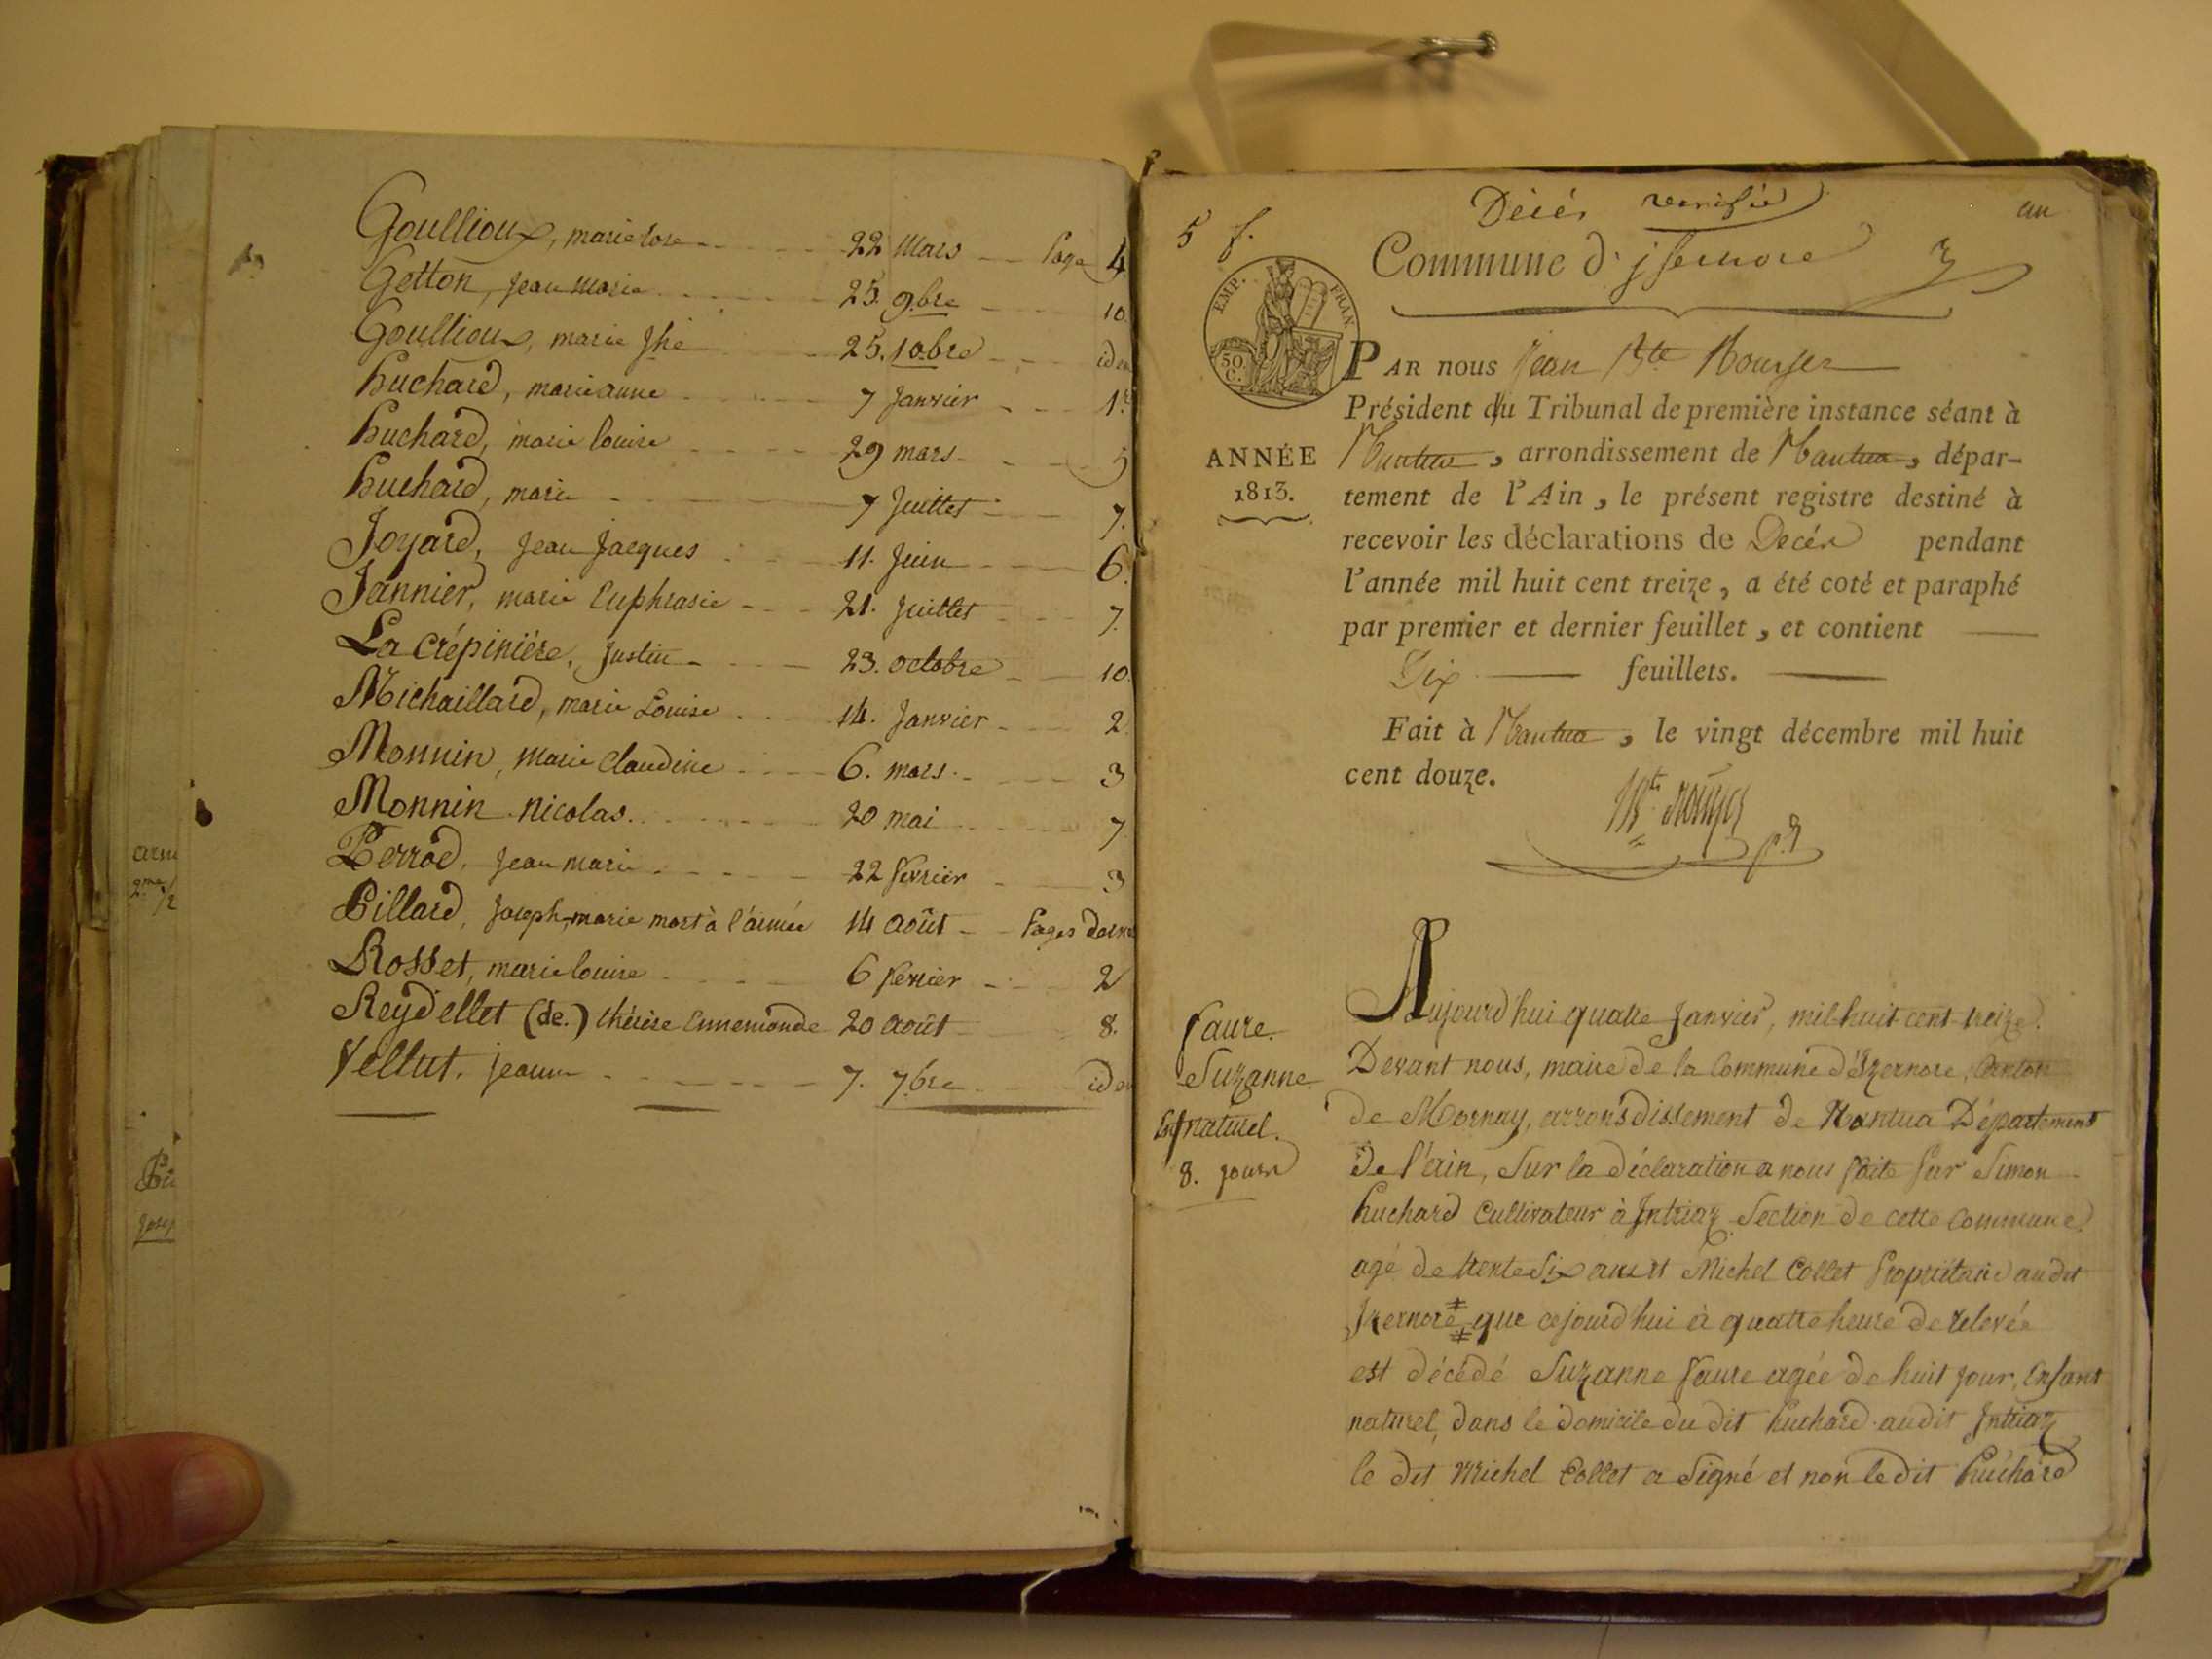 Goullioux, marie rose 22 Mars Page 4
Getton, jean marie 25. 9.bre 10.
Goullioux, marie Jhe 25. 10.bre idem
huchard, marie anne 7 Janvier 1.er
huchard, marie louise 29 mars 5
huchard, marie 7 Juillet 7.
Joyard, jean jacques 11. Juin 6.
Jannier, marie Euphrasie 21. Juillet 7.
La Crépinière, Justin 23. octobre 10.
Michaillard, marie Louise 14. Janvier 2
Monnin, marie Claudine 6. mars 3
Monnin Nicolas. 20 mai 7
Perrod, jean marie 22 fevrier 3
Pillard, Joseph-marie mort à l'armée 14 août Pages
Rosset, marie louise 6 fevrier 2
Reydellet (de.) thérèse Ennemonde 20 août 8.
Vellut, jeanne 7. 7.bre
Décés verifié
5 f.
un
Commune d'jsernore
EMP. FRAN.
50 C.
PAR nous Jean Bte Rouyer
Président du Tribunal de première instance séant à
Nantua, arrondissement de Nantua, dépar-
ANNÉE
1813.
tement de l'Ain, le présent registre destiné à
recevoir les déclarations de Décès pendant
l'année mil huit cent treize, a été coté et paraphé
par premier et dernier feuillet, et contient
Dix feuillets.
Fait à Nantua, le vingt décembre mil huit
cent douze.
faure.
Suzanne.
Enf naturel.
8. jours
Aujourd'hui quatre Janvier, mil huit cent treize.
Devant nous, maire de la Commune d'Izernore, Canton
de Mornay, arrondissement de Nantua Département
de l'ain, Sur la déclaration a nous faite par Simon
huchard Cultivateur à Intriaz Section de cette Commune
agé de trente Six ans et Michel Collet Propriétaire audit
Izernore que cejourd'hui à quatre heure de relevée
est décédé Suzanne faure agée de huit jour, Enfant
naturel, dans le domicile du dit huchard audit Intriaz
le dit Michel Collet a Signé et non le dit huchard